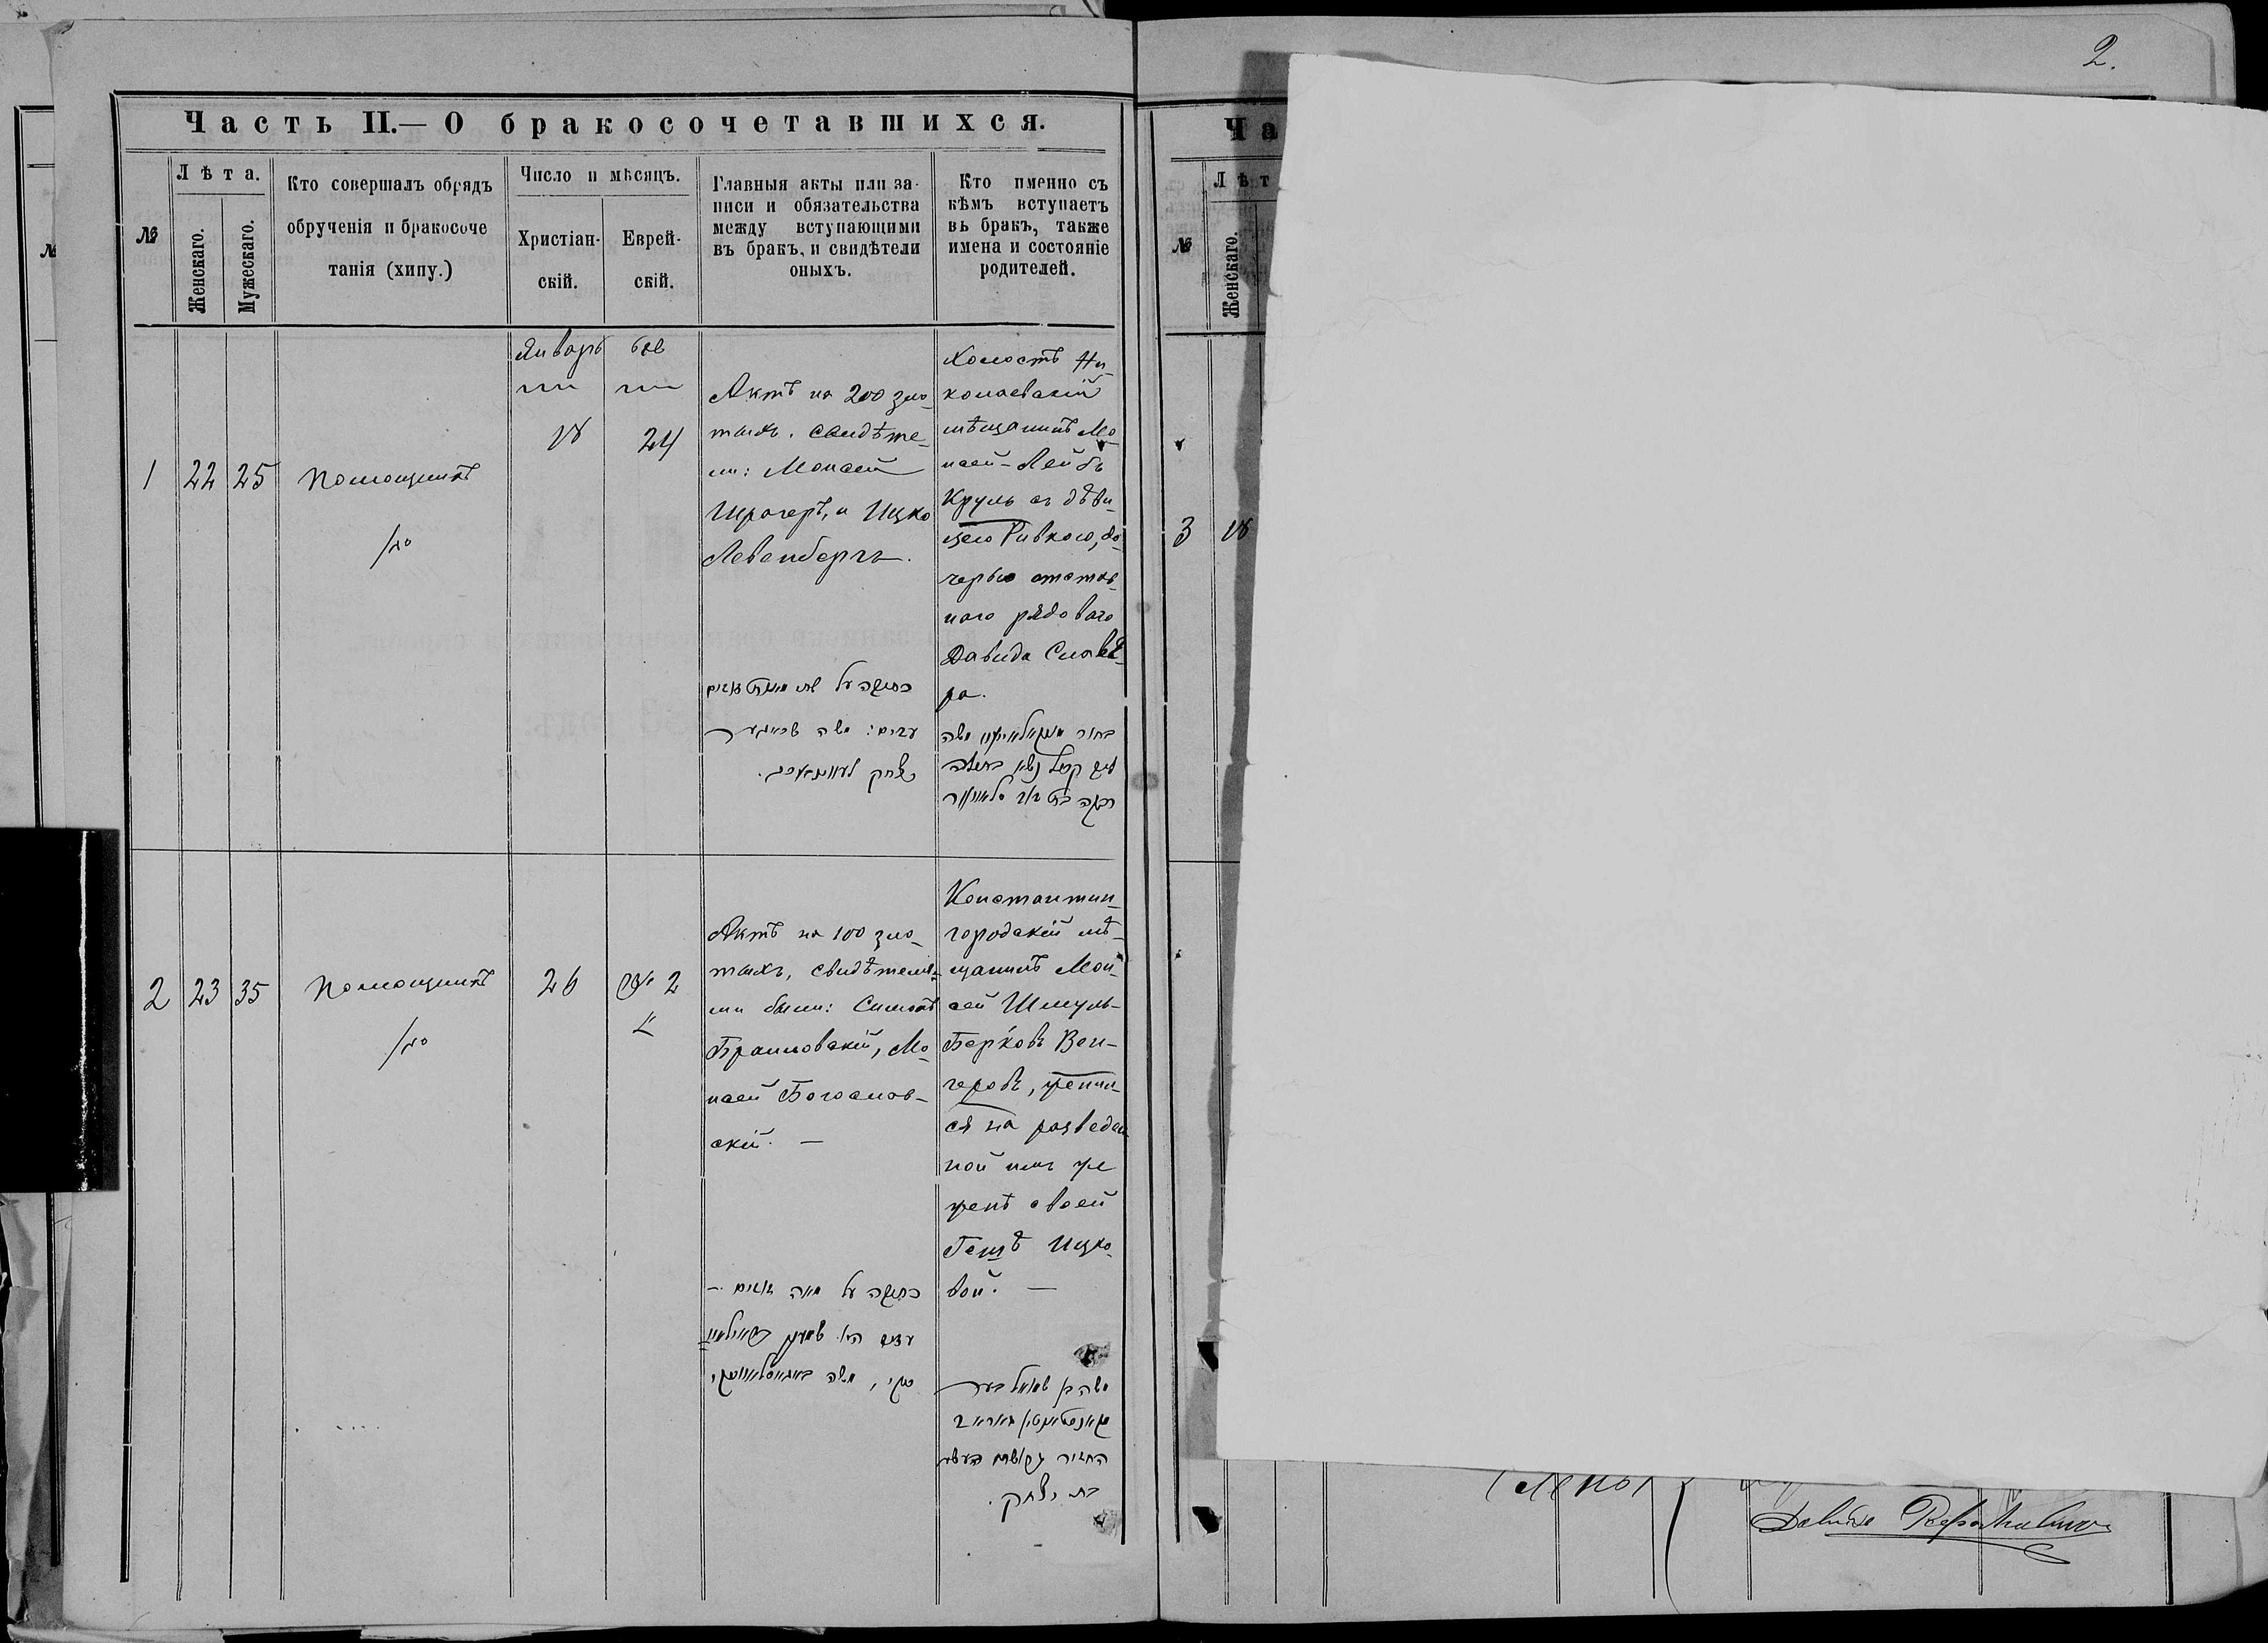 2.
Часть II.— О бракосочетавшихся.
№
Лѣта.
Женскаго.
Мужескаго.
Кто совершалъ обрядъ
обрученія и бракосоче
танія (хипу.)
Число и мѣсяцъ.
Христіан-
скій.
Еврей-
скій.
Главныя акты или за-
писи и обязательства
между вступающими
въ бракъ, и свидѣтели
оныхъ.
Кто именно съ
кѣмъ вступаетъ
въ бракъ, также
имена и состояніе
родителей.
1
22
25
Помощникъ
Январь
18
24
Актъ на 200 зло-
тыхъ. свидѣте-
ли: Моисей
Шрагеръ, и Ицко
Левенбергъ.
כתובה על
עדים: משה
יצחק
Холостъ Ни-
колаевскій
мѣщанинъ Мо-
исей-Лейбъ
Круль съ дѣви-
цею Ривкою, до-
черью отстав-
наго рядоваго
Давида
ра.
בחור משה
רבקה בת
2
23
35
Помощникъ
26
2
Актъ на 100 зло-
тыхъ, свидѣтеля-
ми были: Симонъ
Браиловскій, Мо-
исей Богослов-
скій. —
כתובה על מאה
משה
Константин-
городскій мѣ-
щанинъ Мои-
сей Шмуль-
Берковъ Вен-
геровъ, женил-
ся на разведен-
ной имъ же
женѣ своей
Гешѣ Ицко-
вой. —
משה בן שמואל בער
בת יצחק.
Ча
№
Лѣт
Женскаго.
3
18